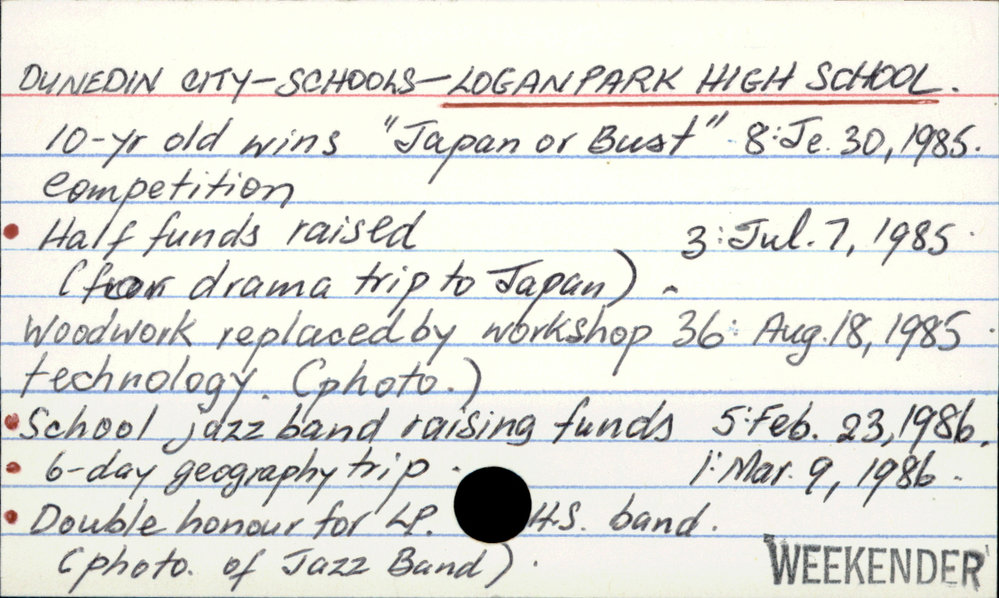 DUNEDIN CITY-SCHOOLS-LOGAN PARK HIGH SCHOOL.
10-yr old wins "Japan or Bust" 8:Je. 30, 1985.
competition
• Half funds raised 3:Jul. 7, 1985.
(for drama trip to Japan).
Woodwork replaced by workshop 36: Aug. 18, 1985.
technology. (photo.)
• School jazz band raising funds 5:Feb. 23, 1986.
• 6-day geography trip. 1:Mar. 9, 1986.
• Double honour for L.P. H.S. band.
(photo. of Jazz Band).
WEEKENDER